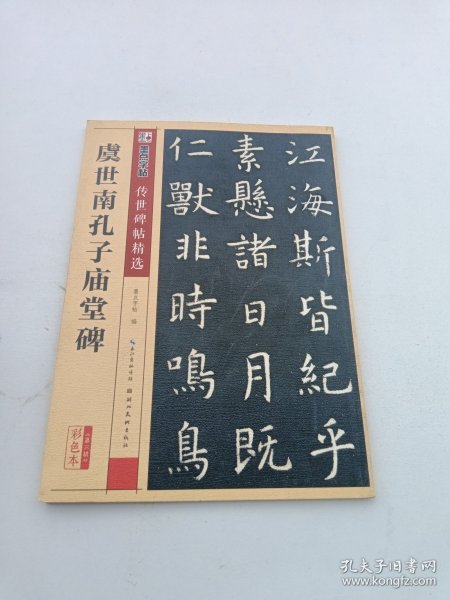 虞世南孔子庙堂碑
墨点字帖
传世碑帖精选
墨点字帖 编
长江出版传媒
湖北美术出版社
彩色本
江海斯皆紀乎
素懸諸日月既
仁獸非時鳴鳥
孔夫子旧书网
www.kongfz.com